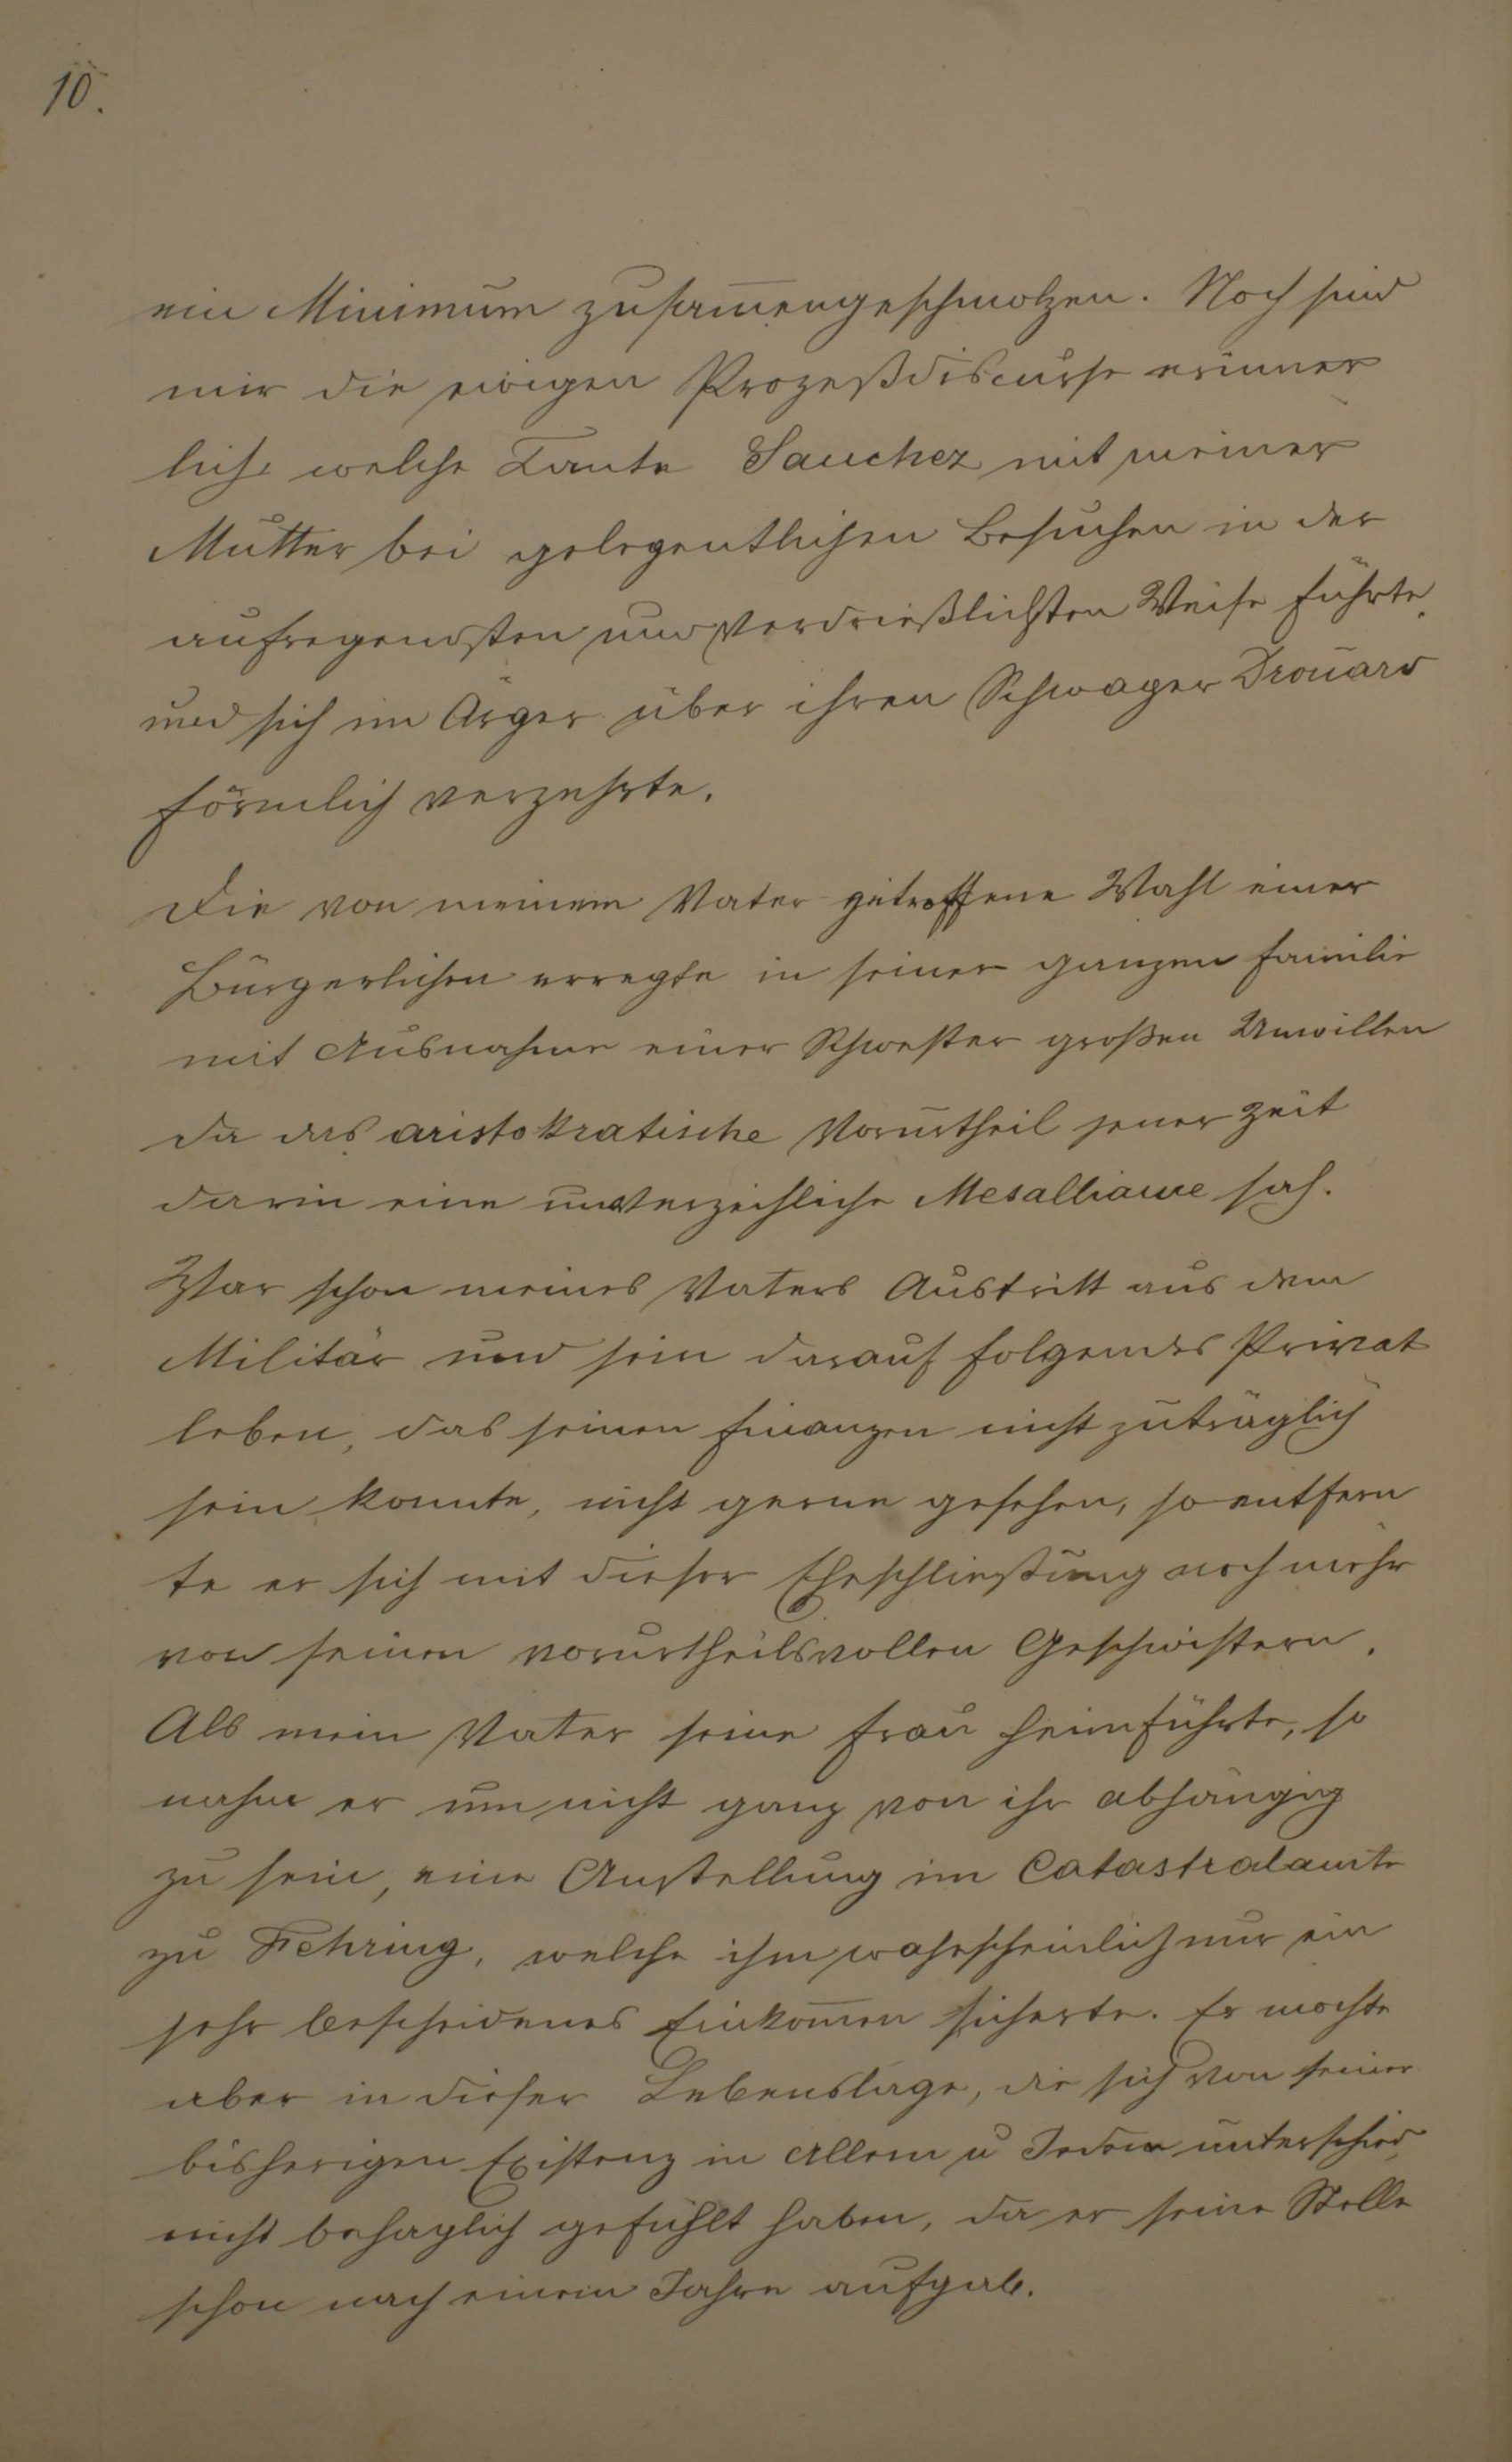 10.
ein Minimum zusam̅engeschmolzen. Noch sind
mir die ewigen Prozeßdiscurse erinner
lich, welche Tante Sanchez mit meiner
Mutter bei gelegentlichen Besuchen in der
aufregendsten und verdrießlichsten Weise führte,
und sich im Ärger über ihren Schwager Drouard
förmlich verzehrte.
Die von meinem Vater getroffene Wahl einer
Bürgerlichen erregte in seiner ganzen Familie
mit Ausnahme einer Schwester großen Unwillen
da das aristokratische Vorurtheil jener Zeit
darin eine unverzeihliche Mesalliance sah.
War schon meines Vaters Austritt aus dem
Militär und sein darauf folgendes Privat
leben, das seinen Finanzen nicht zuträglich
sein konnte, nicht gerne gesehen, so entfern
te er sich mit dieser Eheschließung noch mehr
von seinen vorurtheilsvollen Geschwistern.
Als mein Vater seine Frau heimführte, so
nahm er um nicht ganz von ihr abhängig
zu sein, eine Anstellung im Catastralamte
zu Fehring, welche ihm wahrscheinlich nur ein
sehr bescheidenes Einkom̅en sicherte. Er mochte
aber in dieser Lebenslage, die sich von seiner
bisherigen Existenz in Allem u Jedem unterschied,
nicht behaglich gefühlt haben, da er seine Stelle
schon nach einem Jahre aufgab.